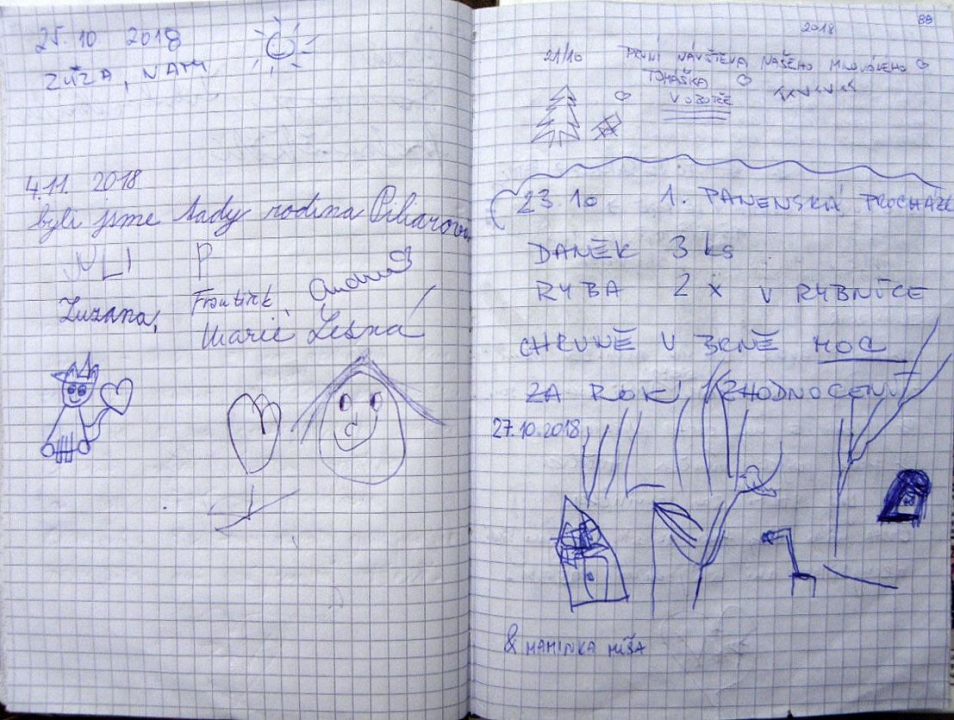 25.10 2018
ZUZA, NAM
4.11. 2018
byli jsme tady rodina
P
Zuzana, Františk, 
Marie Lesná
88
2018
21/10 PRVNÍ NÁVŠTĚVA NAŠEHO MILOVANÉHO
TOMÁŠKA
V OBOŘE
23.10 1. PANENSKÁ PROCHÁZK
DANĚK 3 ks
RYBA 2 x V RYBNÍCE
CHRUNĚ V BRNĚ MOC
ZA ROK ZHODNOCENÍ
27.10.2018
& MAMINKA MÍŠA